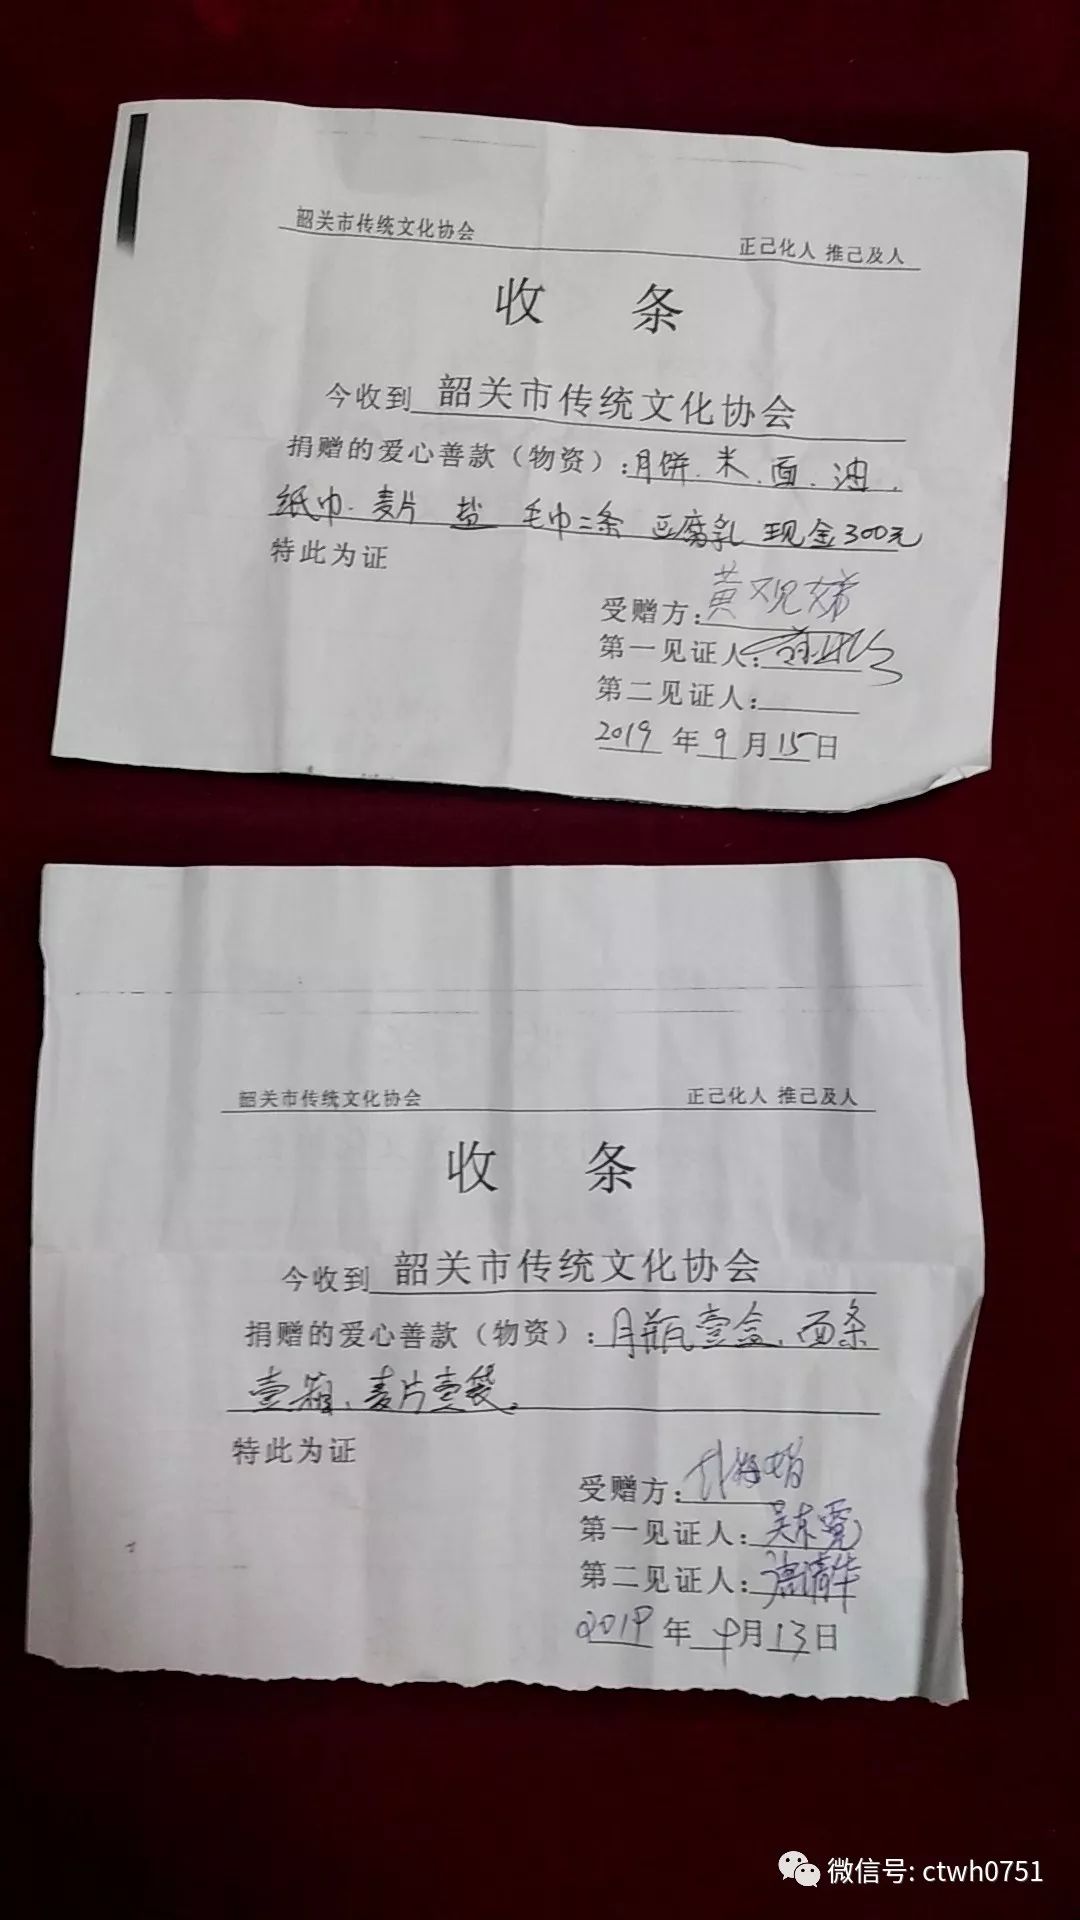 韶关市传统文化协会 正己化人 推己及人
收 条
今收到 韶关市传统文化协会
捐赠的爱心善款（物资）：月饼、米、面、油、
纸巾、麦片 盐 毛巾二条 豆腐乳 现金300元
特此为证
受赠方：黄观娣
第一见证人：
第二见证人：
2019年9月15日
韶关市传统文化协会 正己化人 推己及人
收 条
今收到 韶关市传统文化协会
捐赠的爱心善款（物资）：月瓶壹盒、面条
壹箱、麦片壹袋。
特此为证
受赠方：
第一见证人：吴东霓
第二见证人：唐清华
2019年9月13日
微信号: ctwh0751